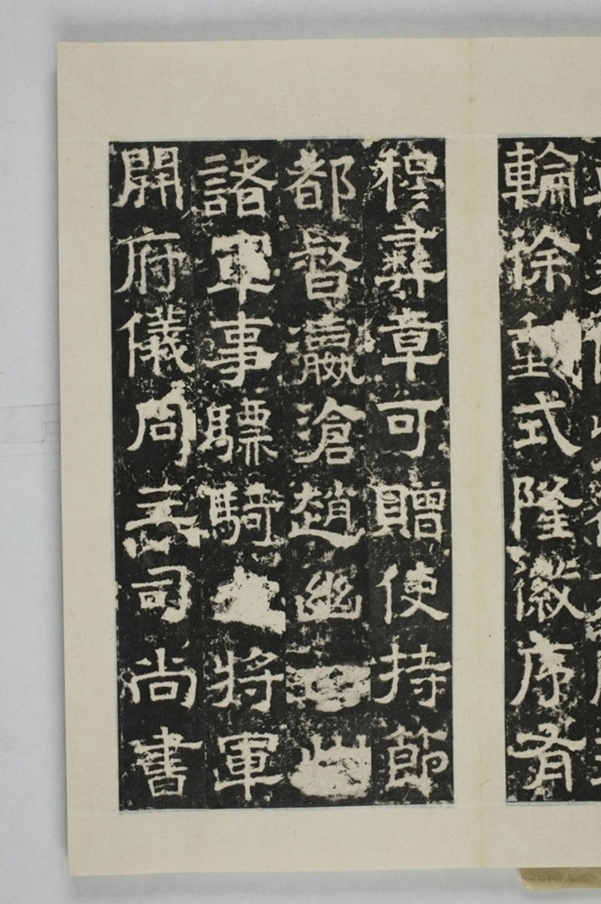 輪徐重式隆徽序有
穆彝章可贈使持節
都督瀛滄趙幽四州
諸軍事驃騎大將軍
開府儀同三司尚書